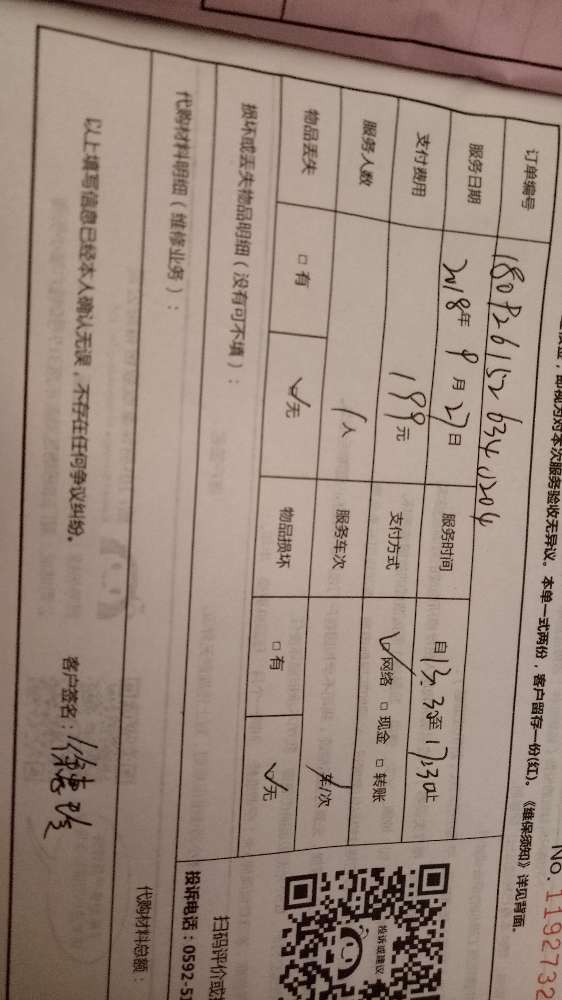 即视为对本次服务验收无异议。本单一式两份，客户留存一份(红)。《维保须知》详见背面。
No.1192732
订单编号 180926152634
服务日期 2018年9月27日 服务时间 自13:30至17:30止
支付费用 199元 支付方式 ☑网络 □现金 □转账
服务人数 1人 服务车次 车/次
物品丢失 □有 ☑无 物品损坏 □有 ☑无
损坏或丢失物品明细（没有可不填）：
代购材料明细（维修业务）：
代购材料总额：
以上填写信息已经本人确认无误，不存在任何争议纠纷。
客户签名：
投诉或建议
扫码评价或
投诉电话：0592-5